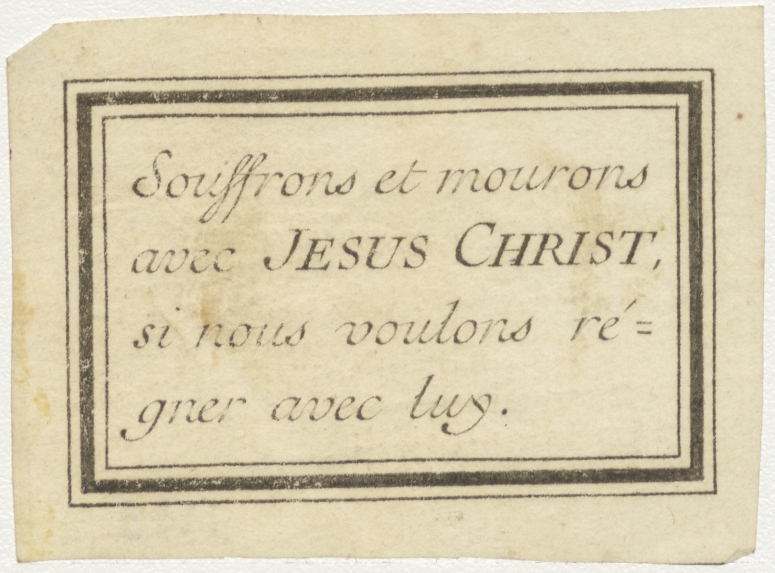 Souffrons et mourons
avec JESUS CHRIST,
si nous voulons ré=
gner avec luy.